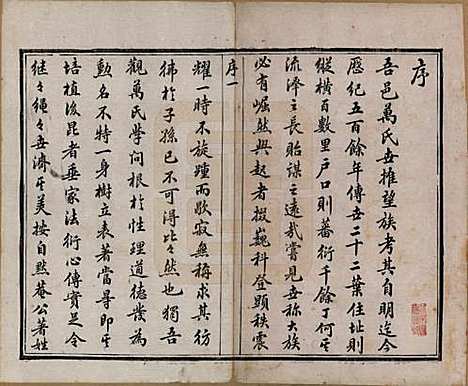 序
吾邑萬氏世推望族考其自明迄今
歷紀五百餘年傳世二十二葉住址則
縱橫百數里戶口則蕃衍千餘丁何其
流澤之長貽謀之遠哉嘗見世稱大族
必有崛然興起者掇巍科登顯秩震
序一
耀一時不旋踵而歇寂無稱求其彷
彿於子孫已不可得比比然也獨吾
觀萬氏學問根於性理道德發為
勳名不特一身樹立表著當尋即其
培植後昆者垂家法衍心傳實足令
繼繼繩繩世濟其美按自默菴公著姓